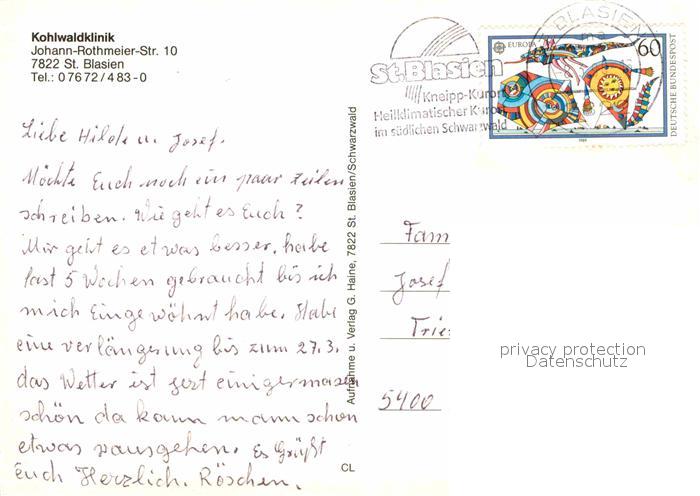 Kohlwaldklinik
Johann-Rothmeier-Str. 10
7822 St. Blasien
Tel.: 0 76 72 / 4 83 - 0
Liebe Hilde u. Josef.
Möchte Euch noch ein paar zeilen
schreiben. Wie geht es Euch?
Mir geht es etwas besser, habe
fast 5 Wochen gebraucht bis ich
mich Eingewöhnt habe. Habe
eine verlängerung bis zum 27.3.
das Wetter ist jezt einigermasen
schön da kann mann schon
etwas rausgehen. Es Grüßt
Euch Herzlich. Röschen.
Aufnahme u. Verlag G. Haine, 7822 St. Blasien/Schwarzwald
CL
St. Blasien
Kneipp-Kurort
Heilklimatischer Kurort
im südlichen Schwarzwald
ST. BLASIEN
EUROPA
60
DEUTSCHE BUNDESPOST
1989
Fam
Josef
Trie
5400
privacy protection
Datenschutz